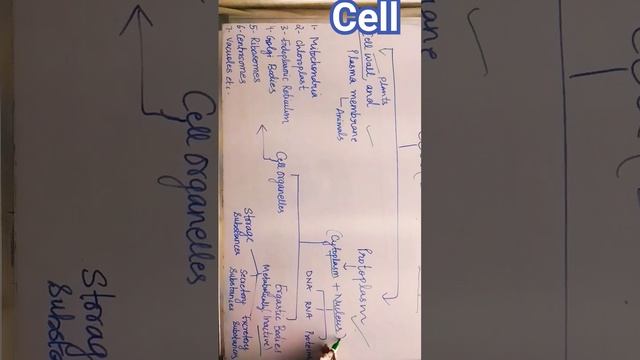 Cell
Cell wall and
Plants
Plasma membrane
Animals
Protoplasm
(Cytoplasm + Nucleus)
DNA RNA
Cell organelles
1- Mitochondria
2- Chloroplast
3- Endoplasmic Reticulum
4- Golgi Bodies
5- Ribosomes
6- Centrosomes
7- Vacuoles etc.
Ergastic Bodies
Metabolically (Inactive)
Storage
Substances
Secretory
Substances
Excretory
Substances
Cell organelles
Storage